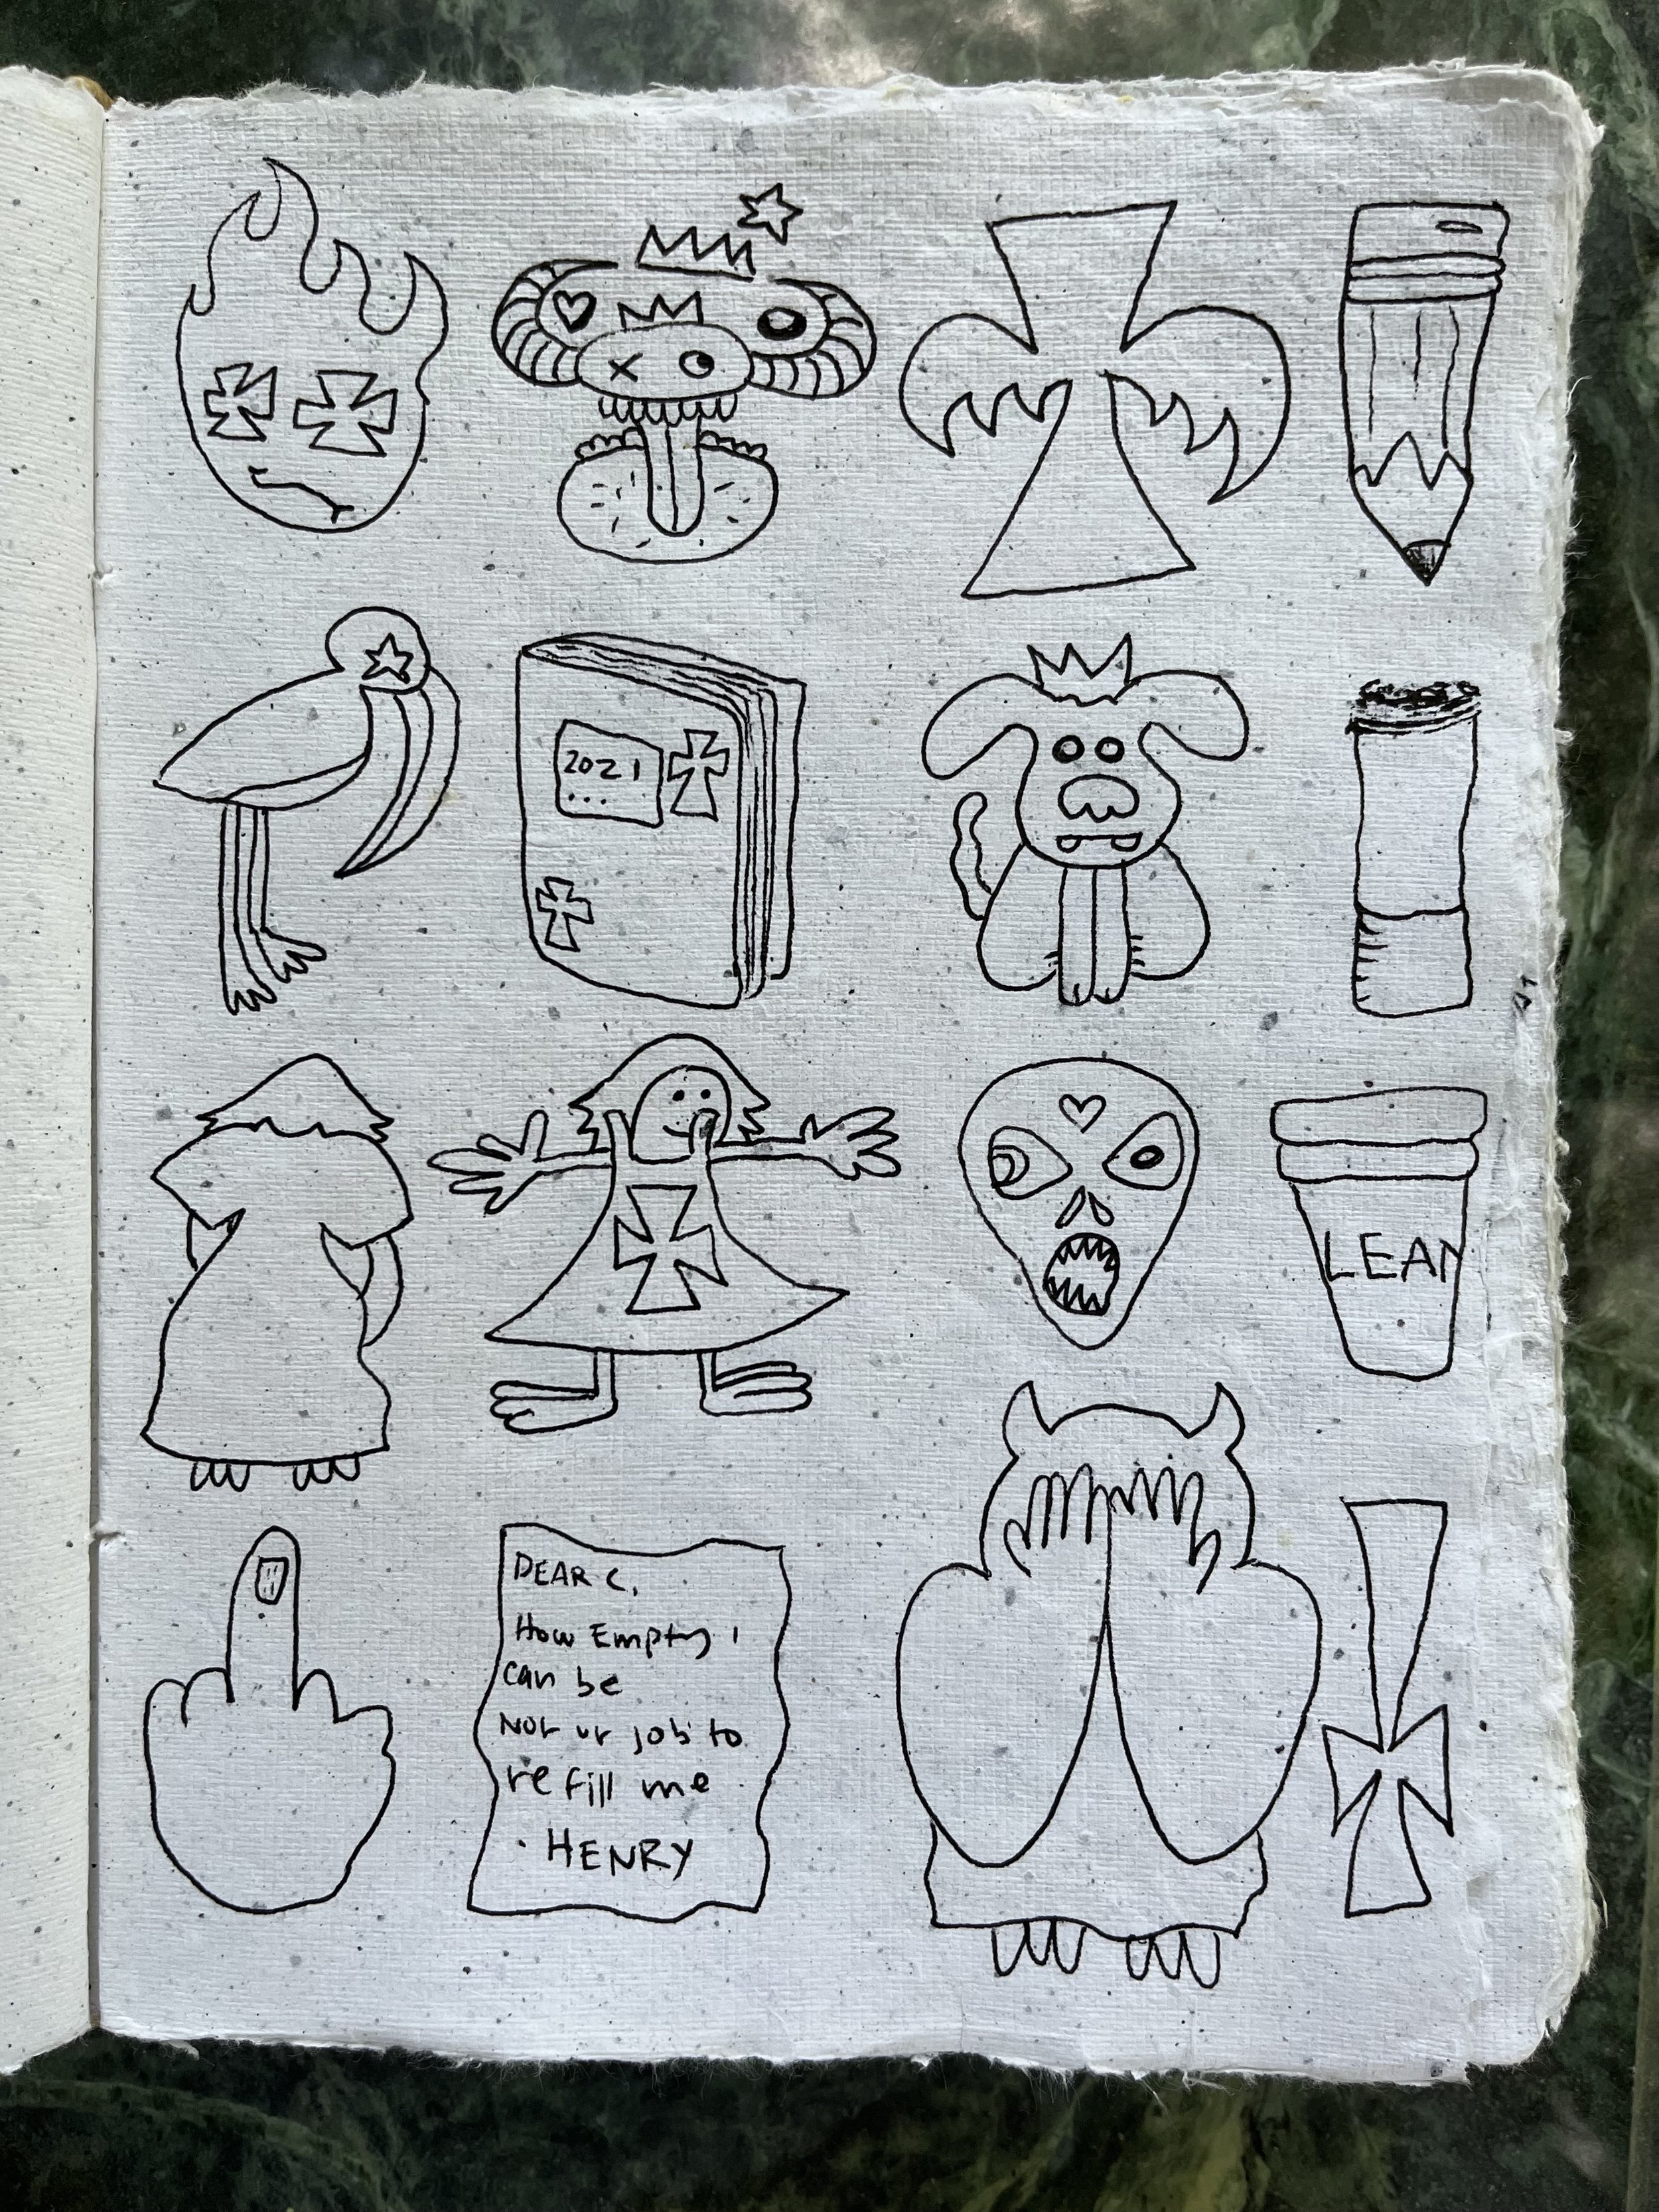 2021
...
LEAN
DEAR C,
How Empty I
can be
Not ur job to
refill me
. HENRY